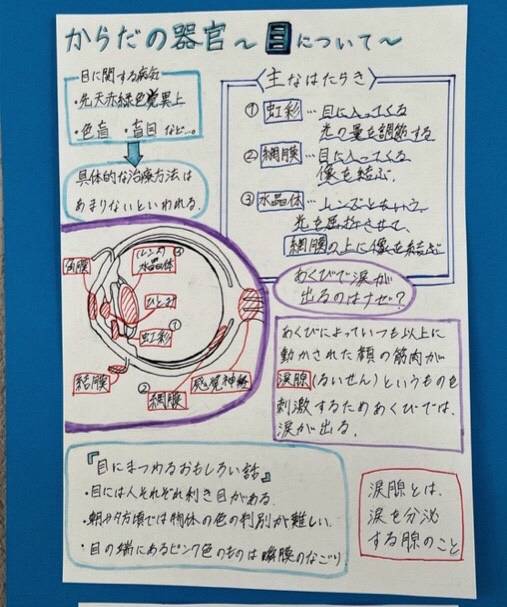 からだの器官〜目について〜
目に関する病気
・先天赤緑色覚異上
・色盲 ・盲目 など…。
具体的な治療方法は
あまりないといわれる。
〈主なはたらき〉
① 虹彩 … 目に入ってくる
光の量を調節する
② 網膜 … 目に入ってくる
像を結ぶ。
③ 水晶体 … レンズともいう
光を屈折させて、
網膜の上に像を結ぶ
角膜
(レンズ) ③
水晶体
ひとみ
虹彩 ①
結膜
② 網膜
感覚神経
あくびで涙が
出るのはナゼ?
あくびによっていつも以上に
動かされた顔の筋肉が
涙腺(るいせん)というものを
刺激するためあくびでは、
涙が出る。
『目にまつわるおもしろい話』
・目には人それぞれ利き目がある。
・朝・夕方頃では物体の色の判別が難しい。
・目の端にあるピンク色のものは瞬膜のなごり。
涙腺とは、
涙を分泌
する腺のこと